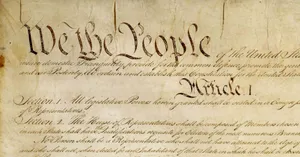 We the People of the United States
insure domestic Tranquility, provide for the common defence, promote the general
and our Posterity, do ordain and establish this Constitution for the United States
Article. I.
Section. 1. All legislative Powers herein granted shall be vested in a Congress of
of Representatives.
Section. 2. The House of Representatives shall be composed of Members chosen
in each State shall have the Qualifications requisite for Electors of the most numerous Branch
No Person shall be a Representative who shall not have attained to the Age of
and who shall not, when elected, be an Inhabitant of that State in which he shall